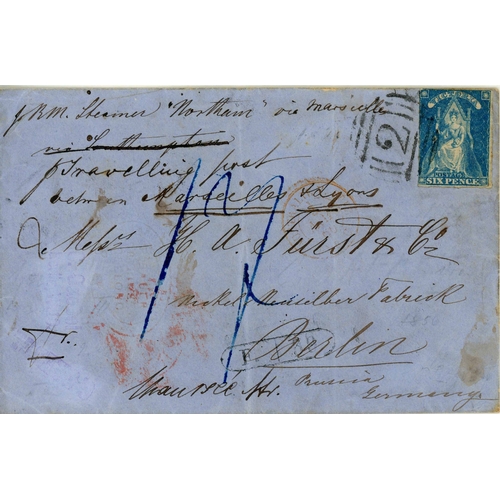 p R.M. Steamer "Northam" via Marseilles
via Southampton
p Travelling post
between Marseilles & Lyons
Messrs H. A. Fürst & Co
Neusilber Fabrick
Berlin
Chaussee Str.
Prussia
Germany
VICTORIA
POSTAGE
SIX PENCE
2